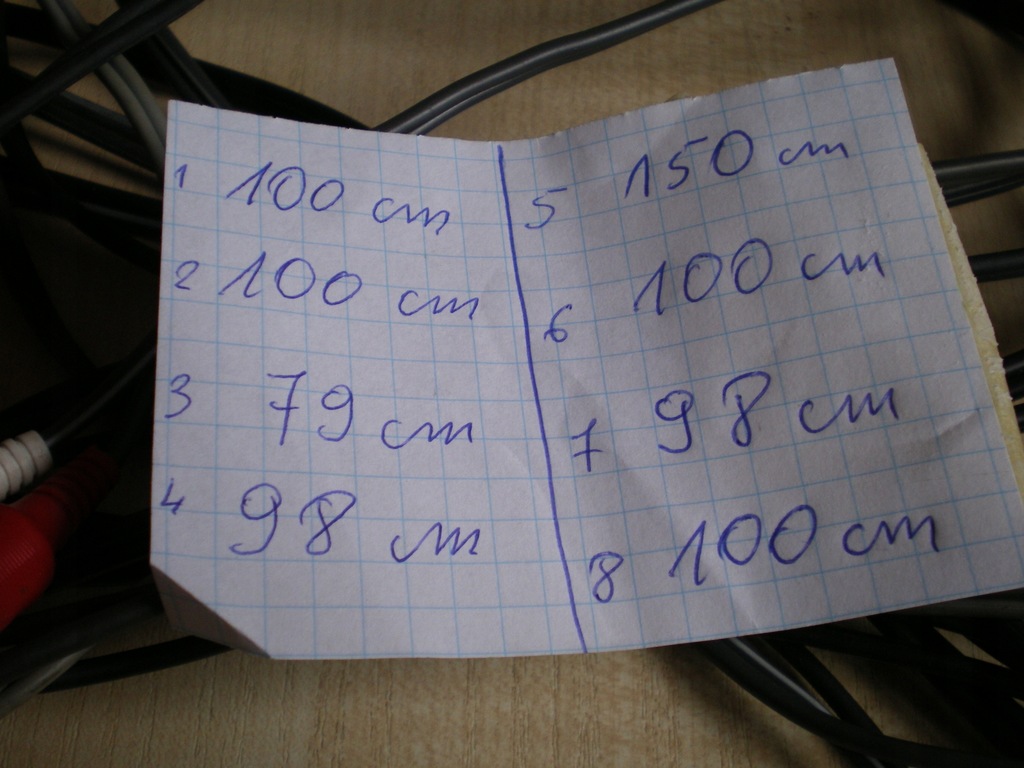 1 100 cm
2 100 cm
3 79 cm
4 98 cm
5 150 cm
6 100 cm
7 98 cm
8 100 cm